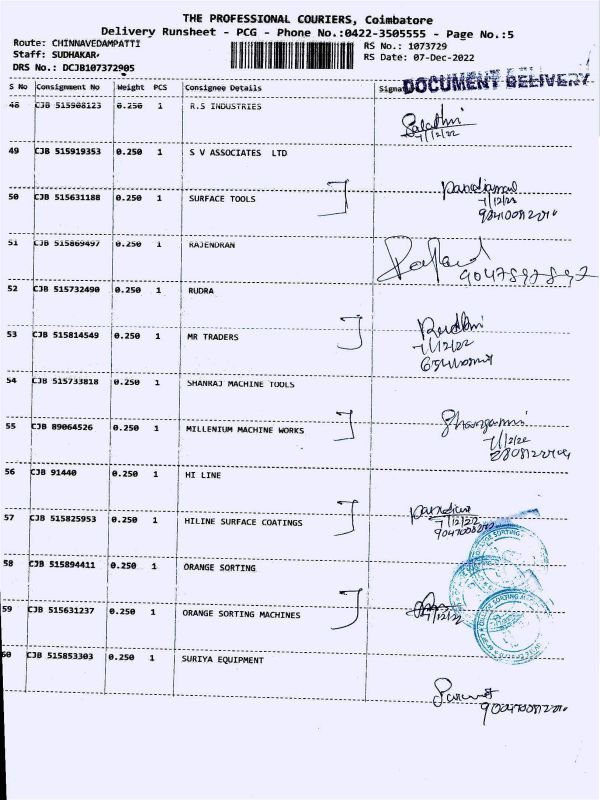 THE PROFESSIONAL COURIERS, Coimbatore
Delivery Runsheet - PCG - Phone No.:0422-3505555 - Page No.:5
Route: CHINNAVEDAMPATTI
RS No.: 1073729
Staff: SUDHAKAR
RS Date: 07-Dec-2022
DRS No.: DCJB107372905
DOCUMENT DELIVERY
S No Consignment No Weight PCS Consignee Details
48 CJB 515908123 0.250 1 R.S INDUSTRIES
7/12/22
49 CJB 515919353 0.250 1 S V ASSOCIATES LTD
50 CJB 515631188 0.250 1 SURFACE TOOLS
7/12/22
51 CJB 515869497 0.250 1 RAJENDRAN
9047897897
52 CJB 515732490 0.250 1 RUDRA
53 CJB 515814549 0.250 1 MR TRADERS
7/12/22
54 CJB 515733818 0.250 1 SHANRAJ MACHINE TOOLS
55 CJB 89064526 0.250 1 MILLENIUM MACHINE WORKS
7/12/22
56 CJB 91440 0.250 1 HI LINE
57 CJB 515825953 0.250 1 HILINE SURFACE COATINGS
7/12/22
58 CJB 515894411 0.250 1 ORANGE SORTING
59 CJB 515631237 0.250 1 ORANGE SORTING MACHINES
7/12/22
60 CJB 515853303 0.250 1 SURIYA EQUIPMENT